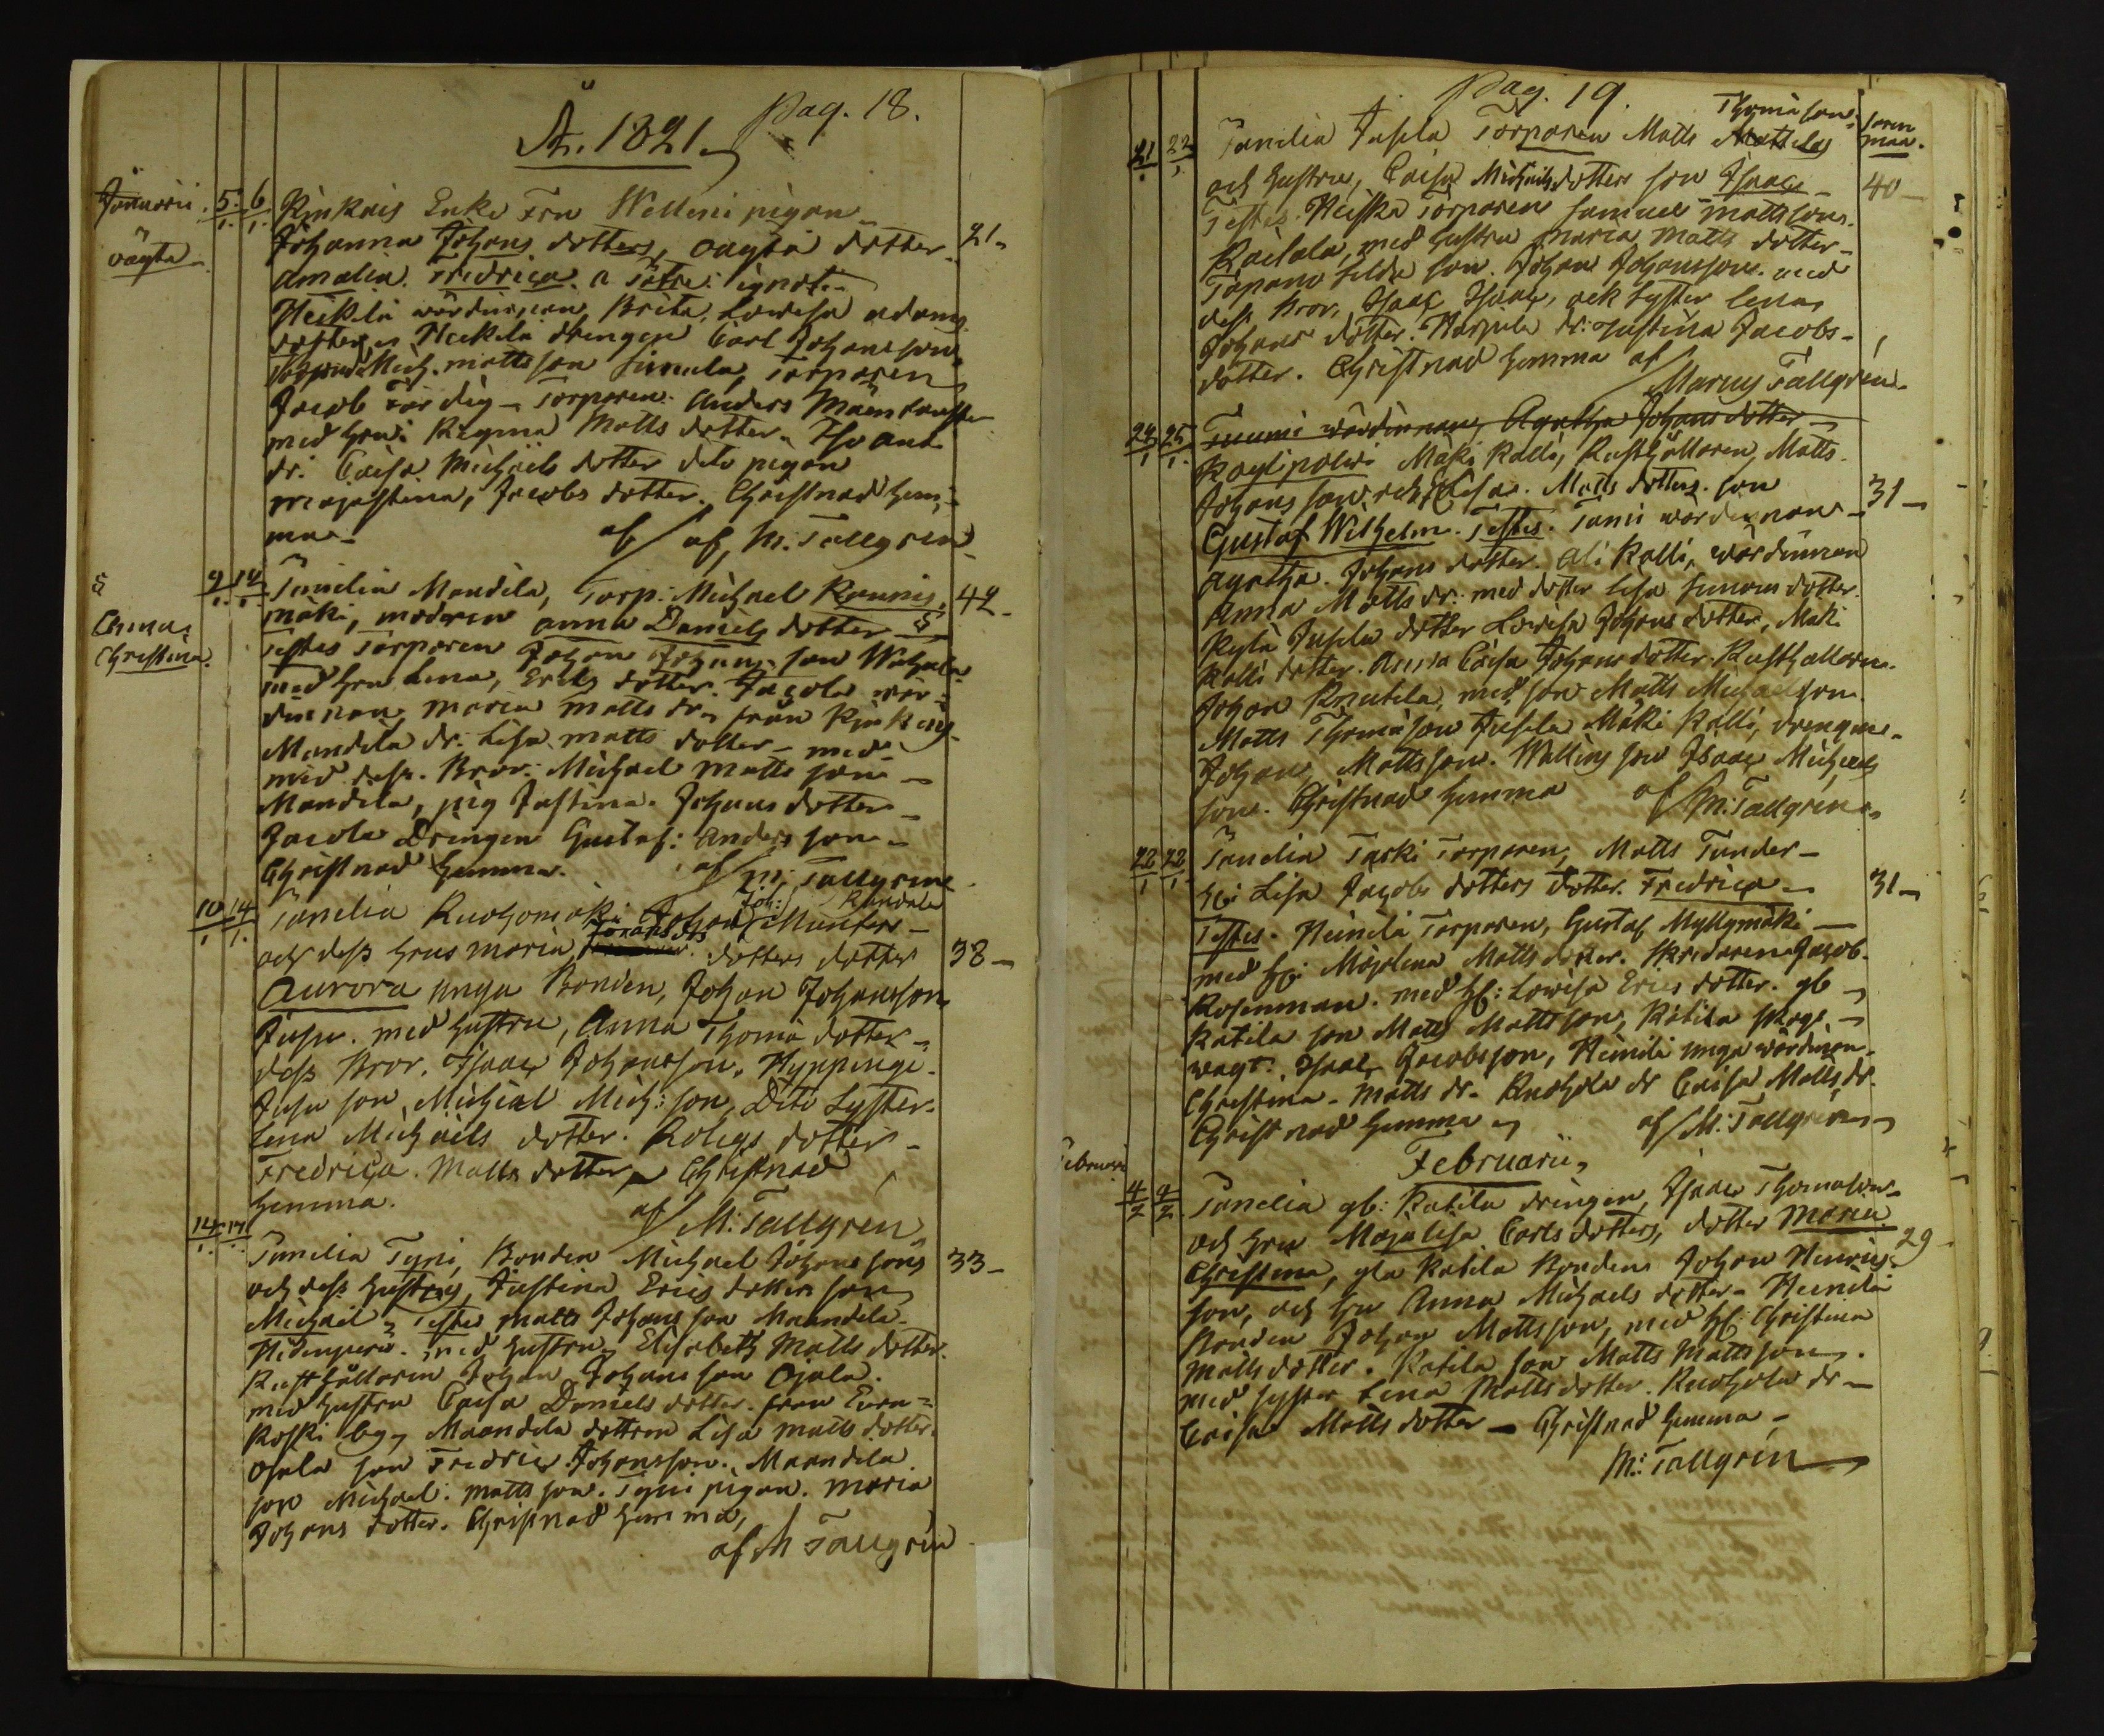 Pag. 18.
År. 1821.
Januarii 5/1. 6/1. Kinkais Enke Fru Wellmi pigan
oägta Johanna Johans dotters, oagta dotter 21.
Amalia Fredrica a Patre ignoti
Heikilä wärdinnan Brita Lowisa adams
dotter, Heikilä drengen Carl Johansson
Mich. mattsson Simula, Torparen
Jacob Färdig Torparen Anders
med hru: Regina Matts dotter
dr. Caisa Michaels dotter dito pigan
Majastina, Jacobs dotter. Christnad hem-
ma af M. Tallgren
9/1. 14/1. Tanelia Mandila, Torp. Michael Raunis- 42
mäki, moderen anna Daniels dotter §
§ Anna Christina. Testes Torparen Johan Johans son
med hru Lena, Erics dotter. Jacola wär-
dinnan, maria Matts dr, från Kinkais
Mandila dr: Lisa matts dotter med
med dess. Bror. Michael Matts son
Mandila, pig Justina Johans dotter
Jacola Drengen Gustaf: Anders son
Christnad hemma. af M. Tallgren
10/1 14/1. Tanelia Ruohomäki Johan Munters
Joh: Randala
och dess hrus maria Johans drs dotters dotter 38
Aurora unga Bonden, Johan Johansson
Jusu. med hustru, Anna Thoma dotter
dess Bror. Isaac Johansson. Hyppingi
Jusu son Michiael Mich: son, Dito Syster
Lena Michaels dotter. dotter
Fredrica. Matts dotter, Christnad
hemma. af M: Tallgren
14/1. 17/1. Tanelia Tyni, Bonden Michael Johans sons 33
och dess hustrus, Justina Erics dotters son
Michael, Testes matts Johans son Maandela
med hustru, Elisabeth Matts dotter.
Rusthållaren Johan Johans son Ojala.
med hustru Caisa Daniels dotter. från Eura=
koski by, Maandela dottren Lisa matts dotter.
Ojala son Fredric Johansson. Maandela
son Michael. matts son. Tyni pigan. maria
Johans dotter. Christnad hemma,
af M Tallgren
Pag. 19.
21/1 22/1 Tanelia Jusela Torparen Matts Mattilas Thoma sons
och hustru, Caisa Michaels dotters son Isaac 40
Testes. Heiska Torparen Samuel mattsson.
med hustru maria matts dotter
son. Johan Johansson. med
dess Bror, Isaac Isaac, ock Syster Lena,
Johans dotter. dr: Justina Jacobs-
dotter. Christnad hemma af
Marcus Tallgren.
24/1 25/1. Tuumi wärdinnan, Agatha Johans dotter
Mäki Kalli, Rusthållaren, Matts
Johans son och Lisa. Matts dotters son 31
Gustaf Wilhelm. Testes. wärdinnan
Agatha Johans dotter. Ali Kalli, wärdinnan
Anna Matts dr: med dotter Lisa Simons dotter.
Kylä Jusela dotter Lowisa Johans dotter, Mäki
Kalli dotter. Anna Caisa Johans dotter. Rusthållaren
Johan Knutila, med son Matts Michaelsson.
Matts Thomasson Jusela Mäki Kalli, drengen
Johan Mattsson. son Isaac Michaels
son. Christnad hemma af M: Tallgren
22/1 22/1 Tanelia Taski Torparen, Matts Tunder
Lisa Jacobs dotters dotter. Fredrica 31
Testes. Heinilä Torparen, Gustaf Myllymäki
med hu: Majlena Matts dotter. Skrädaren Jacob.
Rosenman. med hu: Lowisa Erics dotter. gb
Katila son Matts Mattsson, Katila
Isaac Jacobsson, Heinilä unga wärdinnan
Christina Matts dr. Ruohola dr Caisa Matts, dr.
Christnad hemma af M: Tallgren
Februarii,
Februarii 4/2 4/2 Tanelia gb: Katila drengen, Isaac Thomasson
och hru Majalisa Carls dotters, dotter Maria 29
Christina, gla Katila Bondens Johan Henrics
son, och hru Anna Michaels dotter. Heinilä
Bonden Johan Mattsson, med hu: Christina
Matts dotter. Katila son Matts Mattsson.
med syster Lena Matts dotter. Ruohola dr
Caisa Matts dotter Christnad hemma
M: Tallgren